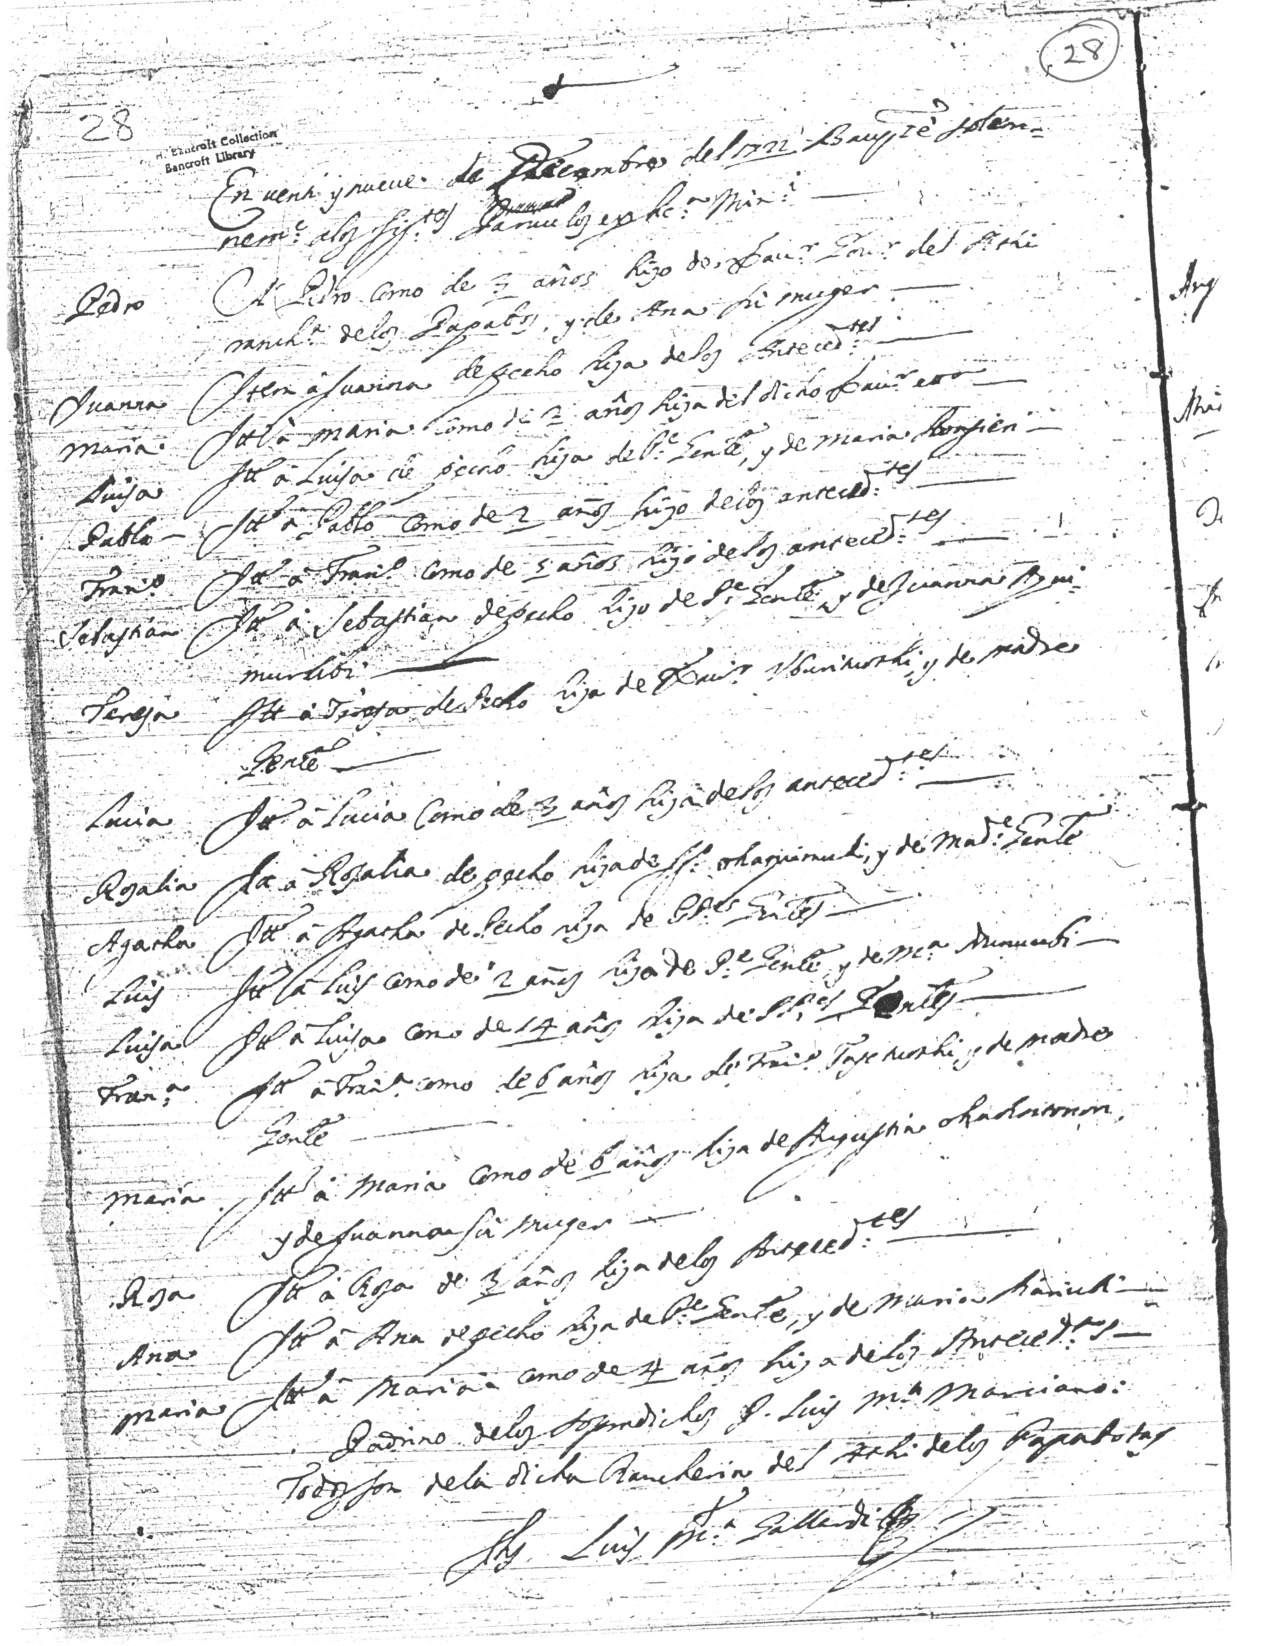 28
28
Bancroft Collection
Bancroft Library
En venti y nueve de Decembre del 1722 Bauptzé solem=
nemte. alos sigtes Parvulos
Pedro A Pedro como de 3 años hijo de Xavr. Govr. del Athi
ranchª. delos Papabos, y de Ana su muger
Juanna Item â Juanna de pecho hija delos Antecedtes.
Maria Itt â Maria como de 2 años hija del dicho Xavr.
Luisa Itt â Luisa de pecho hija de Pe. Gentl, y de Maria
Pablo Itt â Pablo como de 2 años hijo delos antecedtes.
Franco. Itt â Franco. como de 5 años hijo delos antecedtes.
Sebastian Itt â Sebastian de pecho hijo de Pe. Gentl y de Juanna
Teresa Itt â Teresa de Pecho hija de Xavr. y de madre
Gentl
Lucia Itt â Lucia como de 3 años hija delos antecedtes.
Rosalia Itt â Rosalia de pecho hija de y de Made. Gentl
Agatha Itt â Agatha de Pecho hija de PPes Gentles
Luis Itt â Luis como de 2 años hijo de Pe. Gentl y de Mª.
Luisa Itt â Luisa como de 14 años hija de PPes Gentles
Franª. Itt â Franª. como de 6 años hija de Franco. y de madre
Gentl
Maria Itt â Maria como de 6 años hija de Augustin
y de Juanna su muger
Rosa Itt â Rosa de 3 años hija delos Antecedtes.
Ana Itt â Ana de pecho hija de Pe. Gentl, y de Maria
Maria Itt â Maria como de 4 años hija delos Antecedtes
Padrino delos sopradichos D. Luis Mª. Marciano:
Todos son dela dicha Rancheria del Athi delos Papabotas
Luis Mª. Gallardi